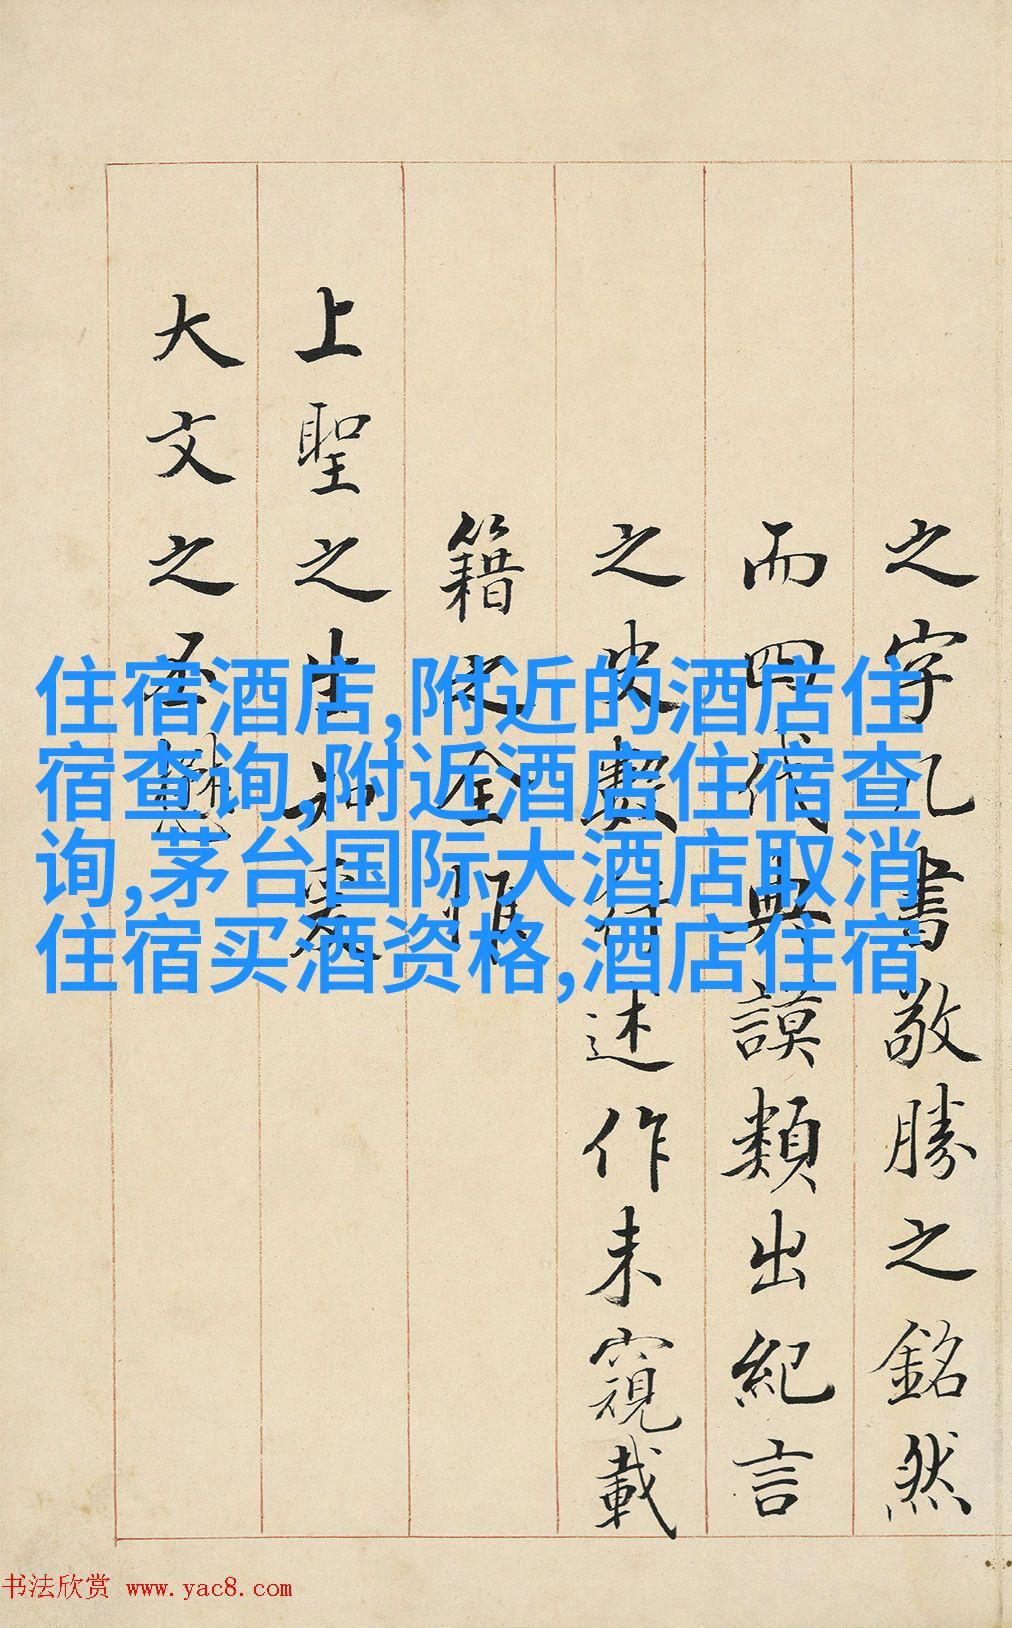 之字几書敬勝之銘然
而四代典謨類出紀言
之史數行述作未窺載
籍之全惟
上聖之生
大文之
住宿酒店,附近的酒店住
宿查询,附近酒店住宿查
询,茅台国际大酒店取消
住宿买酒资格,酒店住宿
书法欣赏 www.yac8.com